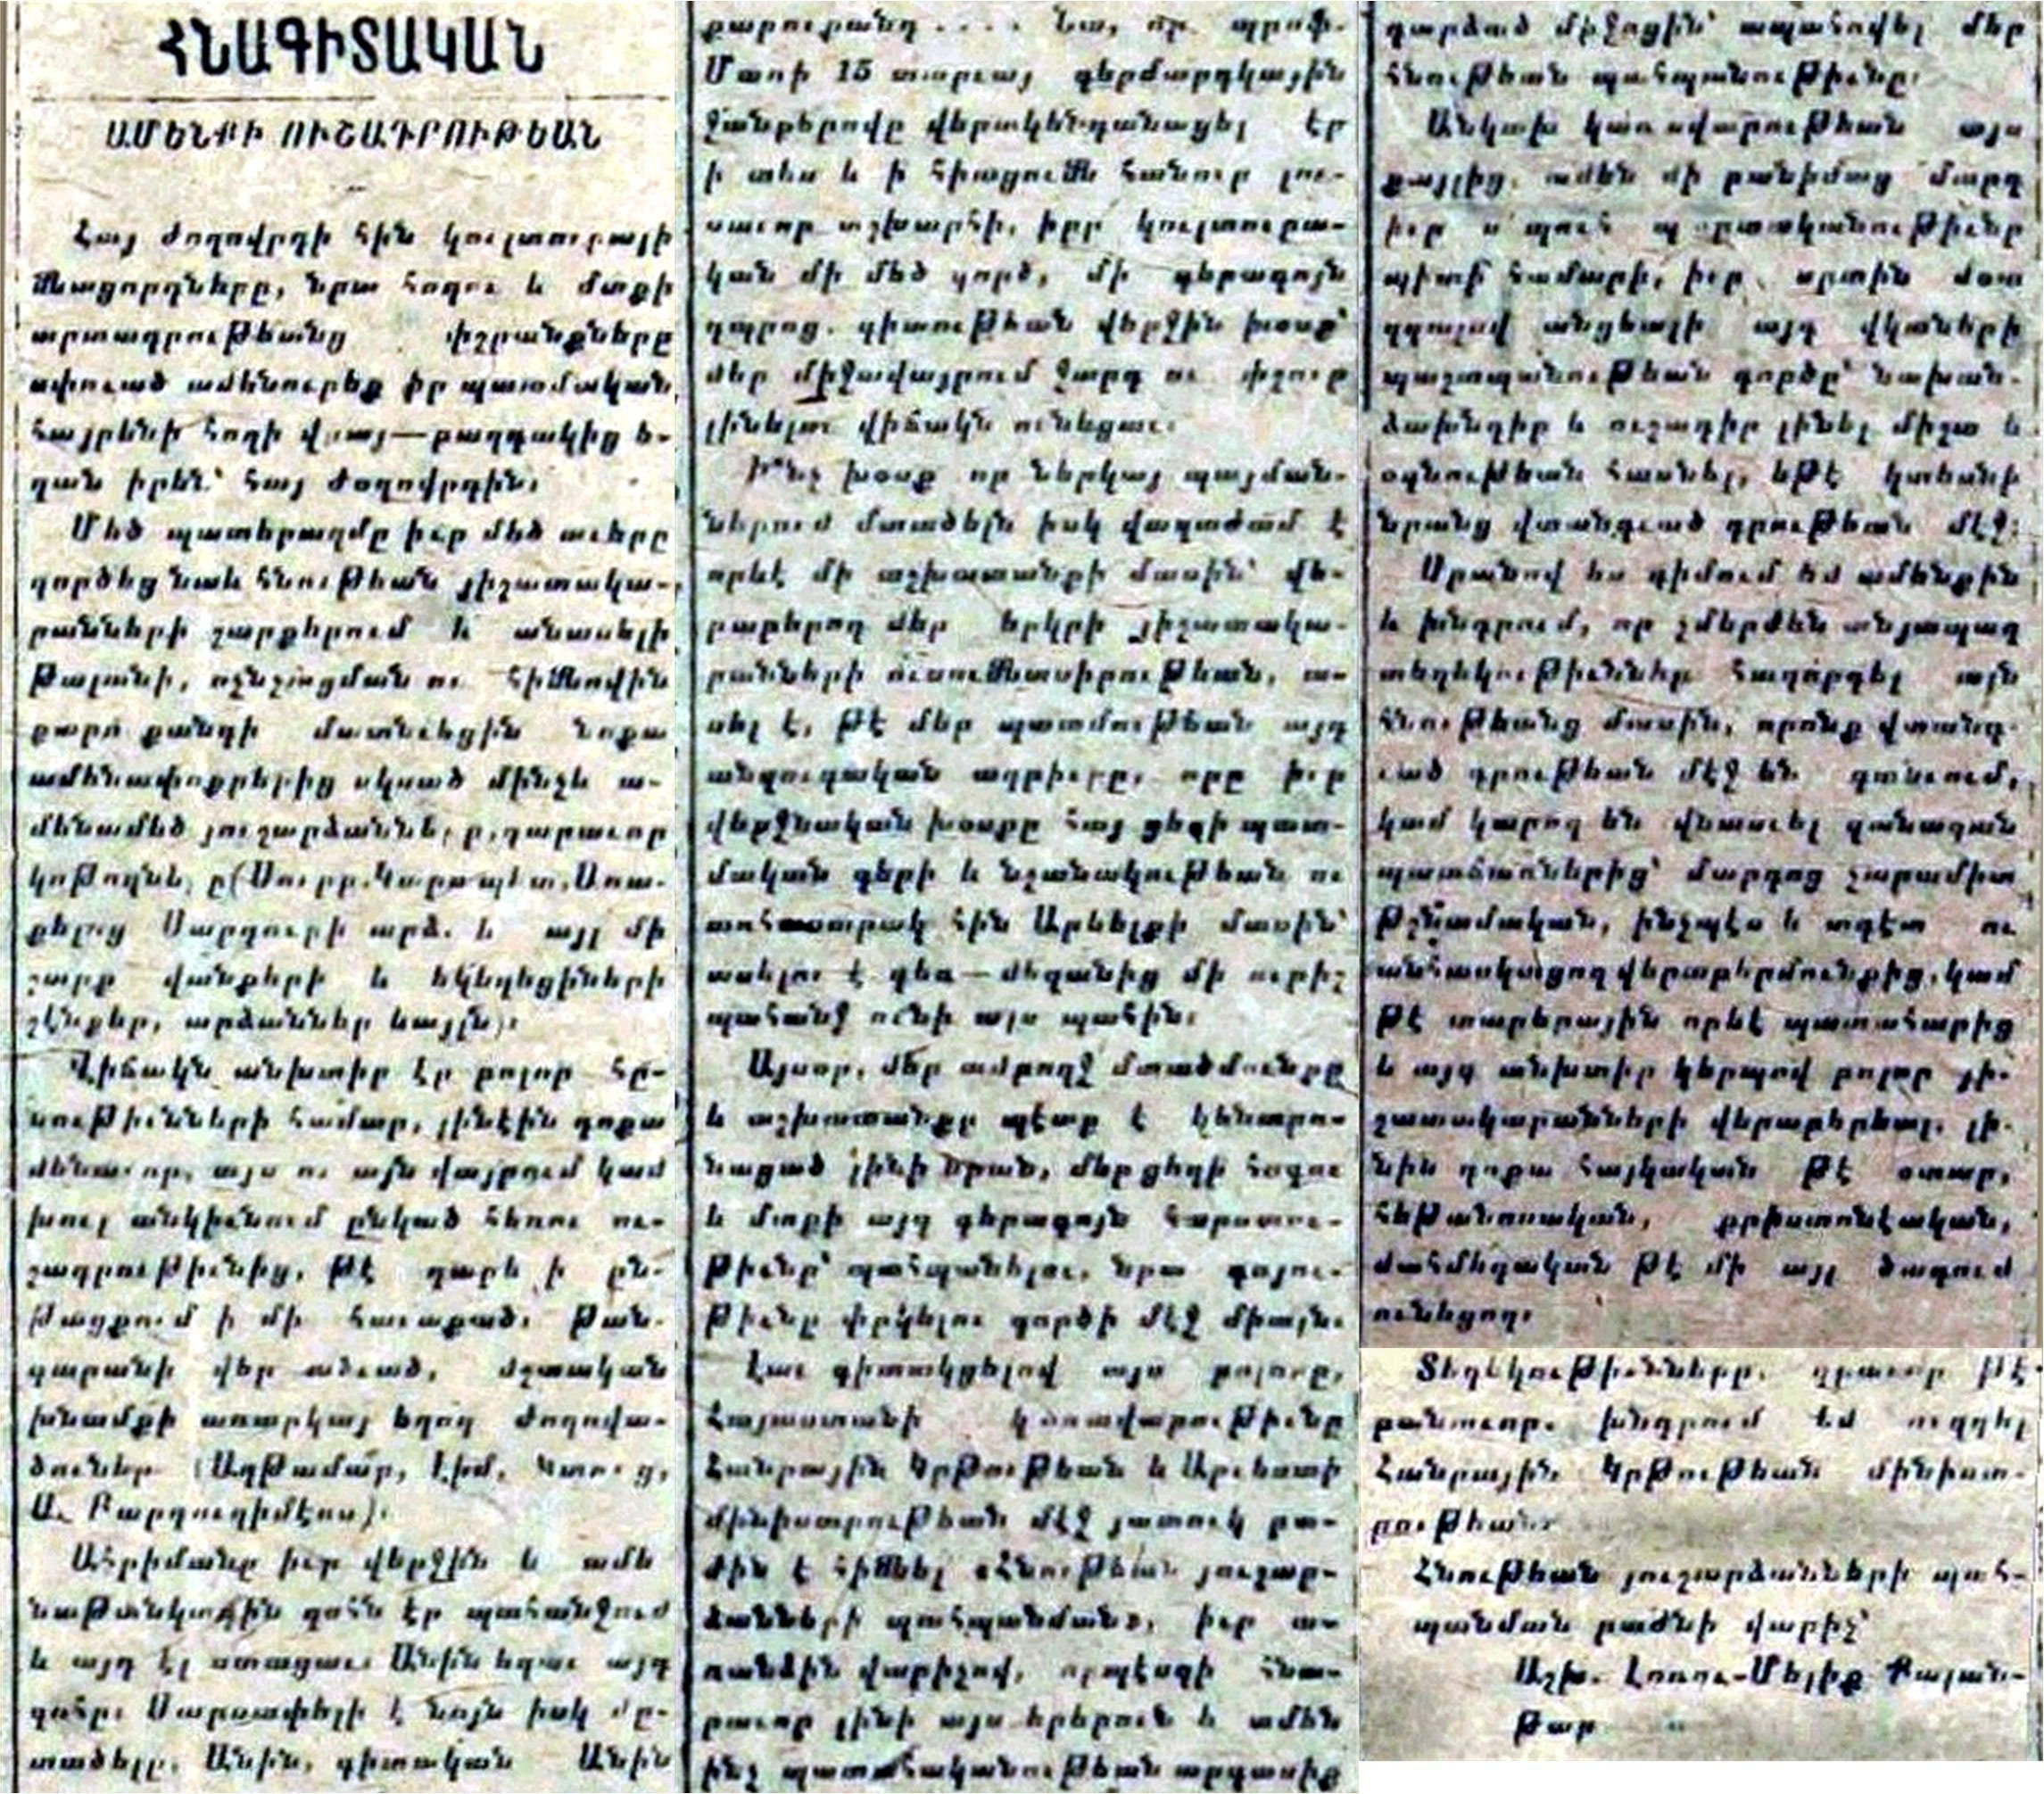 ՀՆԱԳԻՏԱԿԱՆ
ԱՄԵՆՔԻ ՈՒՇԱԴՐՈՒԹԵԱՆ
Հայ ժողովրդի հին կուլտուրայի
մնացորդները, նրա հոգու և մտքի
արտադրութեանց փշրանքները
սփռուած ամենուրեք իր պատմական
հայրենի հողի վրայ—բաղդակից ե-
ղան իրեն՝ հայ ժօղովրդին։
Մեծ պատերազմը իւր մեծ աւերը
գործեց նաև հնութեան յիշատակա-
րանների շարքերում և անասելի
թալանի, ոչնչացման ու հիմնովին
քարուքանդի մատնուեցին նոքա
ամենափոքրերից սկսած մինչև ա-
մենամեծ յուշարձանները, դարաւոր
կոթողները (Սուրբ. Կարապետ, Առա-
քելոց Սարդուրի արձ. և այլ մի
շարք վանքերի և եկեղեցիների
շէնքեր, արձաններ ևայլն)։
Վիճակն անխտիր էր բոլոր հը-
նութիւնների համար, լինէին դոքա
մենաւոր, այս ու այն վայրում կամ
խուլ անկիւնում ընկած հեռու ու-
շադրութիւնից, թէ դարև ի ըն-
թացքում ի մի հաւաքած. թան-
գարանի վեր ածւած, մշտական
խնամքի առարկայ եղող ժողովա-
ծուներ (Աղթամար, Լիմ, Կտուց,
Ս. Բարդուղիմէոս)։
Ահրիմանը իւր վերջին և ամե
նաթանկագին զոհն էր պահանջում
և այդ էլ ստացաւ։ Անին եղաւ այդ
զոհը։ Սարսափելի է նոյն իսկ մը-
տածելը. Անին, գիտական Անին
քարուքանդ .... Նա, որ պրոֆ.
Մառի 15 տարւայ գերմարդկային
ջանքերովը վերակենդանացել էր
ի տես և ի հիացումն հանուր լու-
սաւոր աշխարհի, իբր կուլտուրա-
կան մի մեծ գործ, մի գերագոյն
դպրոց. գիտութեան վերջին խօսք՝
մեր միջավայրում ջարդ ու փշուր
լինելու վիճակն ունեցաւ։
Ի՞նչ խօսք որ ներկայ պայման-
ներում մտածելն իսկ վաղաժամ է
որևէ մի աշխատանքի մասին՝ վե-
րաբերող մեր երկրի յիշատակա-
րանների ուսումնասիրութեան, ա-
սել է, թէ մեր պատմութեան այդ
անզուգական աղբիւրը, որը իւր
վերջնական խօսքը հայ ցեղի պատ-
մական դերի և նշանակութեան ու
առհասարակ հին Արևելքի մասին՝
ասելու է դեռ—մեզանից մի ուրիշ
պահանջ ունի այս պահին։
Այսօր, մեր ամբողջ մտածմունքը
և աշխատանքը պէտք է կենտրո-
նացած լինի նրան, մեր ցեղի հոգու
և մտքի այդ գերագոյն հարստու-
թիւնը՝ պահպանելու, նրա գոյու-
թիւնը փրկելու գործի մէջ միայն։
Լաւ գիտակցելով այս բոլորը,
Հայաստանի կառավարութիւնը
Հանրային Կրթութեան և Արւեստի
մինիստրութեան մէջ յատուկ բա-
ժին է հիմնել «Հնութեան յուշար-
ձանների պահպանման», իւր ա-
ռանձին վարիչով, որպէսզի հնա-
րաւոր լինի այս երերուն և ամեն
ինչ պատահականութեան արգասիք
դարձած միջոցին՝ ապահովել մեր
հնութեան պահպանութիւնը։
Անկախ կառավարութեան այս
քայլից. ամեն մի բանիմաց մարդ
իւր ս պարտականութիւնը
պիտի համարի, իւր սրտին մօտ
զգալով անցեալի այդ վկաների
պաշտպանութեան գործը՝ նախան-
ձախնդիր և ուշադիր լինել միշտ և
օգնութեան հասնել, եթէ կտեսնի
նրանց վտանգւած դրութեան մէջ։
Սրանով ես դիմում եմ ամենքին
և խնդրում, որ չմերժեն անյապաղ
տեղեկութիւններ հաղորդել այն
հնութեանց մասին, որոնք վտանգ-
ւած դրութեան մէջ են գտնւում,
կամ կարող են վնասւել զանազան
պատճառներից՝ մարդոց չարամիտ
թշնամական, ինչպէս և տգէտ ու
անհասկացող վերաբերմունքից, կամ
թէ տարերային որևէ պատահարից
և այդ անխտիր կերպով բոլոր յի-
շատակարանների վերաբերեալ. լի-
նին դոքա հայկական թէ օտար,
հեթանոսական, քրիստոնէական,
մահմեդական թէ մի այլ ծագում
ունեցող։
Տեղեկութիւնները. գրաւոր թէ
բանաւոր. խնդրում եմ ուղղել
Հանրային Կրթութեան մինիստ-
րութեան։
Հնութեան յուշարձանների պահ-
պանման բաժնի վարիչ՝
Աշխ. Լոռու-Մելիք Քալան-
թար